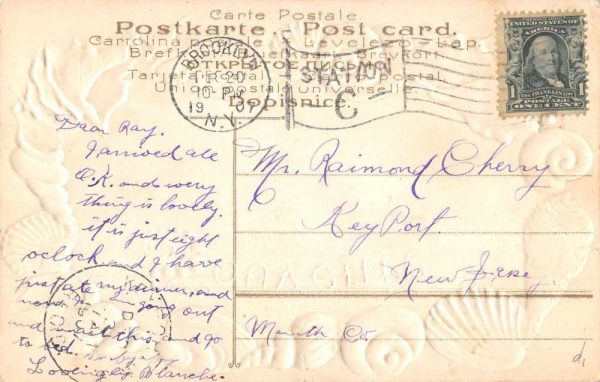 Carte Postale
Postkarte. - Post card.
Cartolina postale - Levelező-Lap.
Brefkort - Briefkaart - Brevkort
ОТКРЫТОЕ ПИСЬМО
Tarjeta postal
Union postale universelle.
Dopisnice.
BROOKLYN
20
10 P
19 07
N.Y.
STATION
C
UNITED STATES OF AMERICA
1 FRANKLIN 1
POSTAGE
ONE CENT
Dear Ray.
I arrived ale
O.K. and every
thing is lovely.
it is just eight
oclock and I have
just ate my dinner, and
now I am going out
and mail this, and go
to bed.
Lovingly Blanche.
Mr. Raimond Cherry
KeyPort.
New Jersey
Monmth Co.
d1